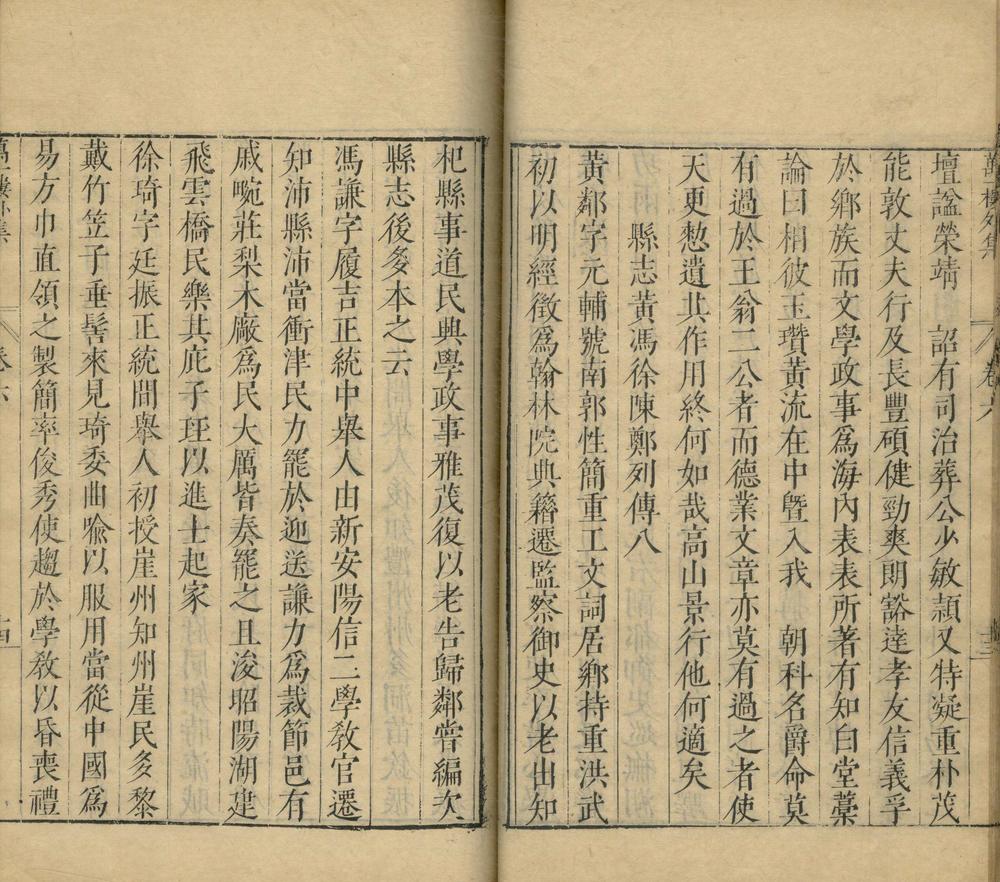 萬樓外集 卷六 十三
壇諡榮靖 詔有司治葬公少敏穎又特凝重朴茂
能敦丈夫行及長豐碩健勁爽朗豁達孝友信義孚
於鄉族而文學政事為海內表表所著有知白堂藁
論曰相彼玉瓚黃流在中暨入我 朝科名爵命莫
有過於王翁二公者而德業文章亦莫有過之者使
天更憖遺其作用終何如哉高山景行他何適矣
縣志黃馮徐陳鄭列傳八
黃鄰字元輔號南郭性簡重工文詞居鄉持重洪武
初以明經徵爲翰林院典籍遷監察御史以老出知
杞縣事道民興學政事雅茂復以老告歸鄰嘗編次
縣志後多本之云
馮謙字履吉正統中舉人由新安陽信二學教官遷
知沛縣沛當衝津民力罷於迎送謙力爲裁節邑有
戚畹莊梨木廠爲民大厲皆奏罷之且浚昭陽湖建
飛雲橋民樂其庇子玨以進士起家
徐琦字廷振正統間舉人初授崖州知州崖民多黎
戴竹笠子垂髻來見琦委曲喻以服用當從中國爲
易方巾直領之製簡率俊秀使趨於學教以昏喪禮
萬樓外集 卷六 十四